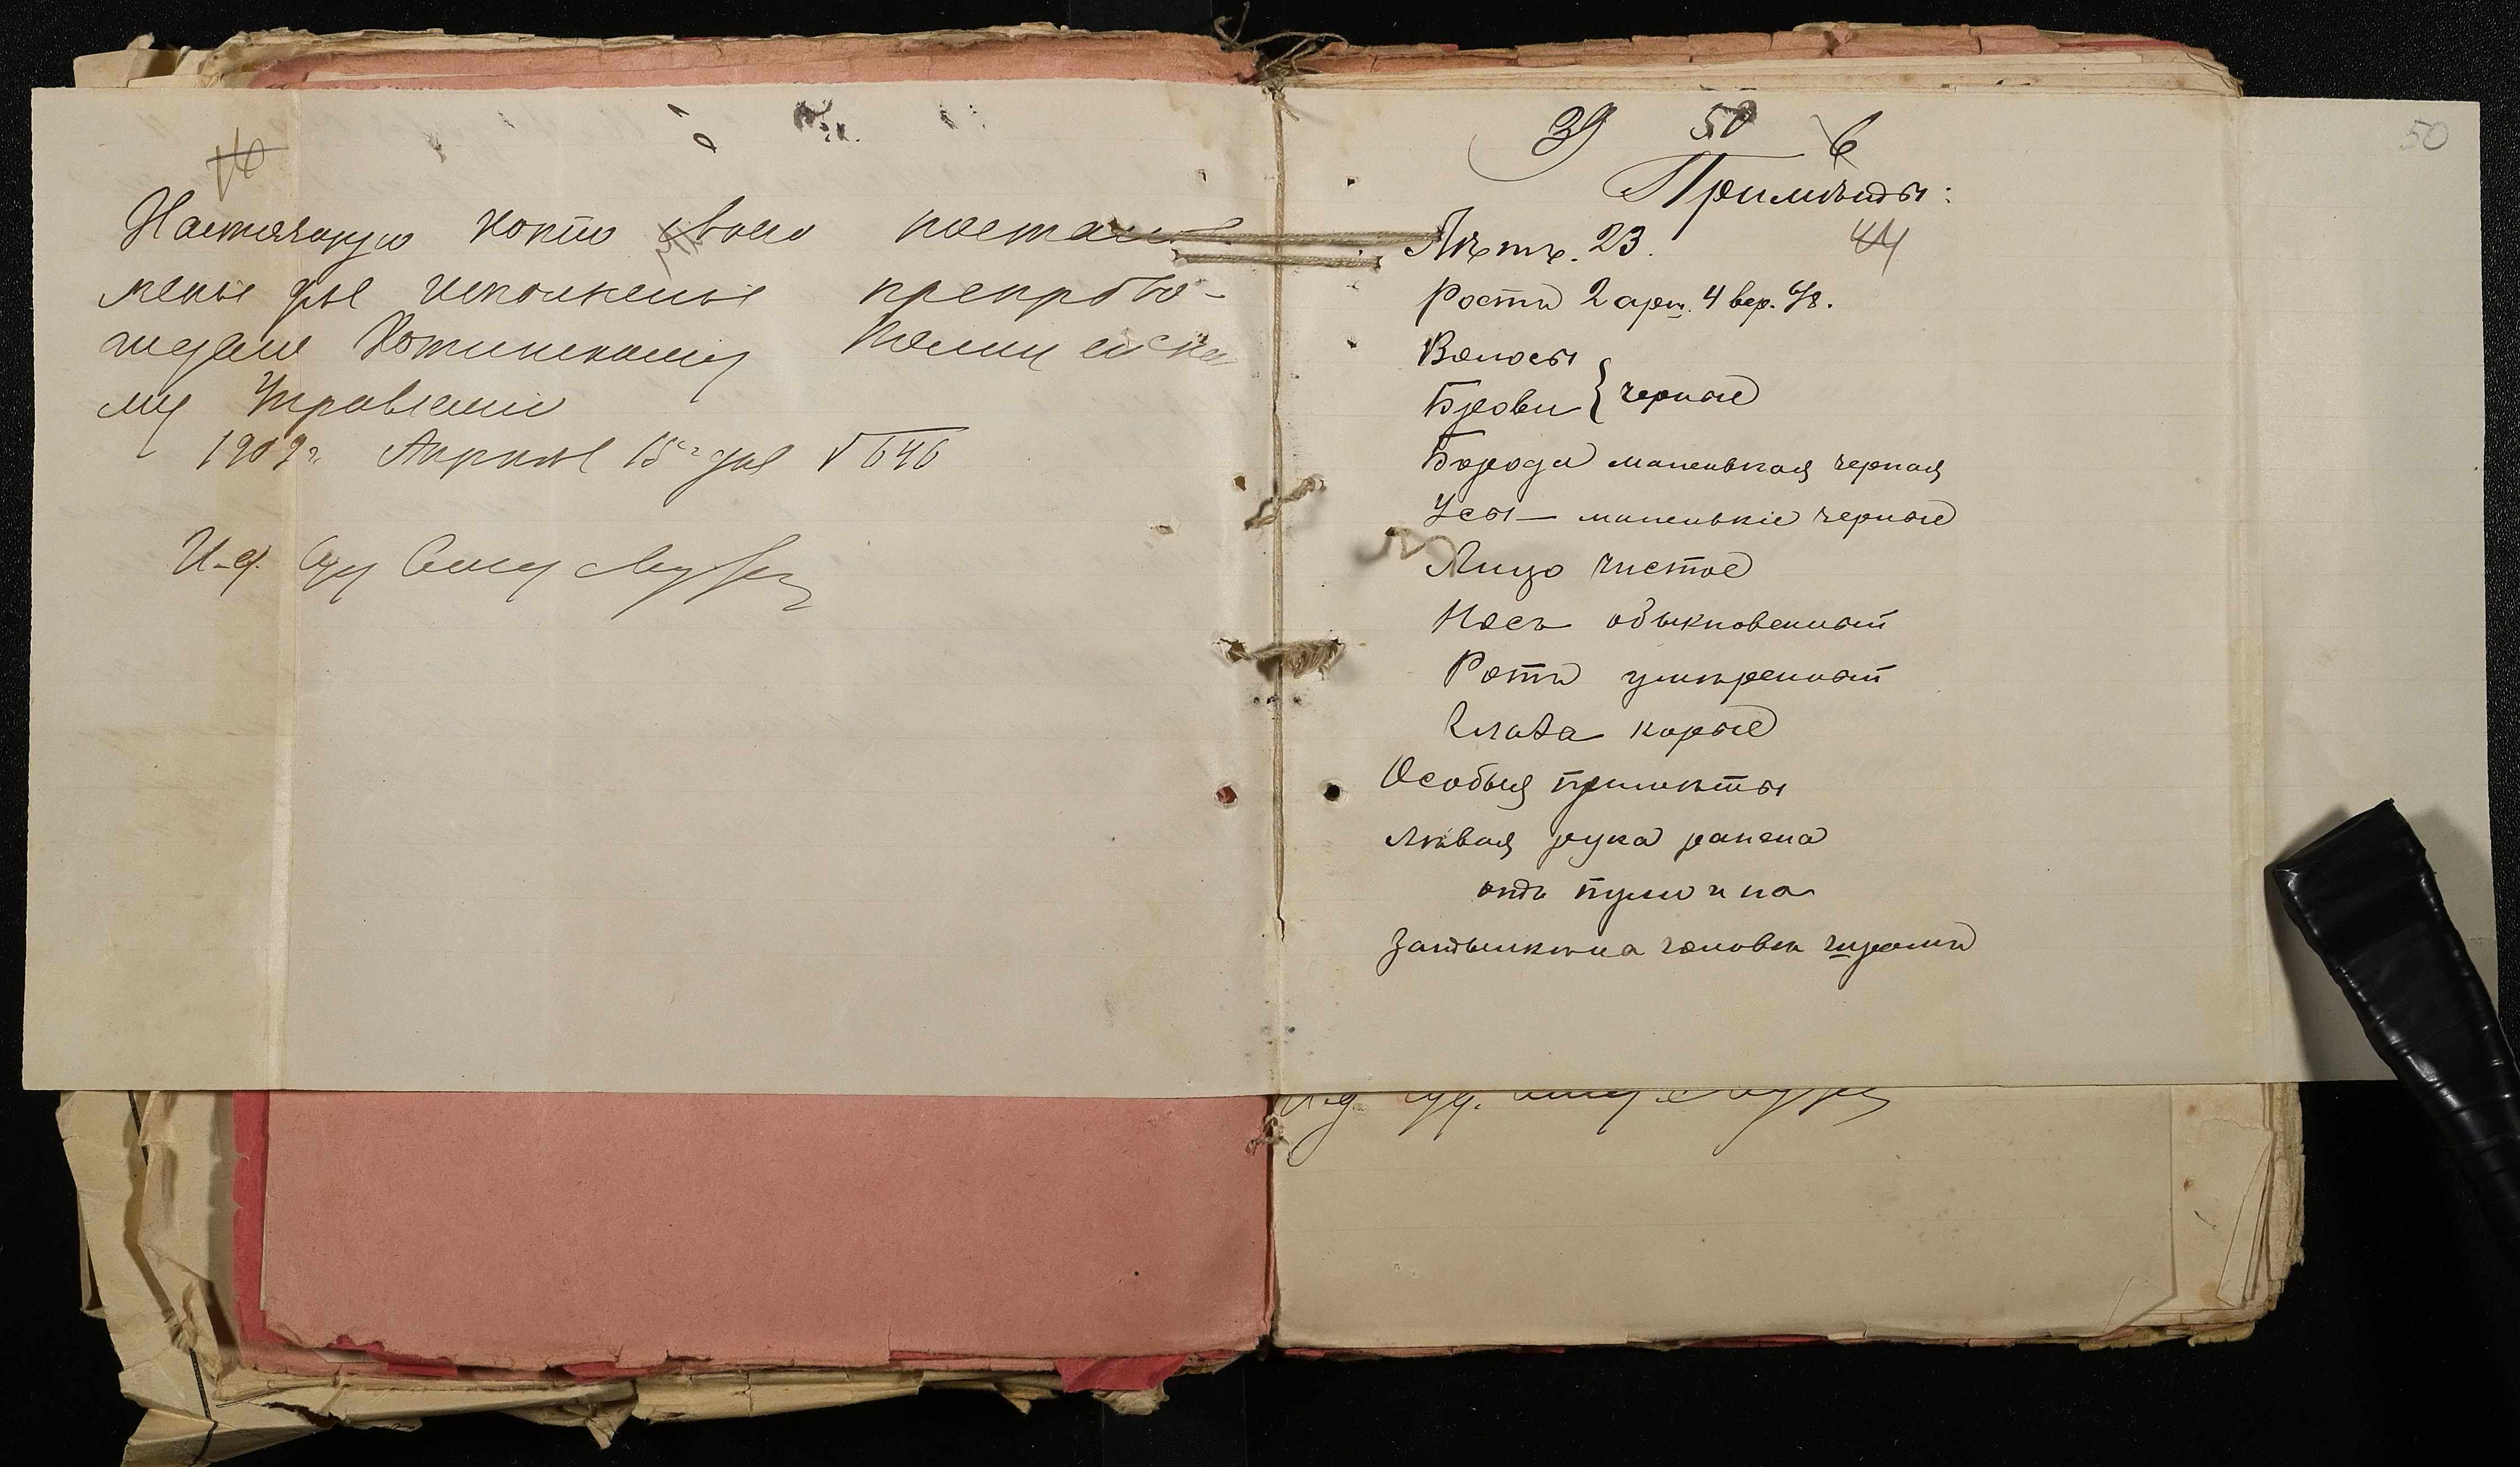 Настоящую копію своего постанов-
ленія для исполненія препрово-
ждаю Хотинскому Полицейско-
му Управленію
1909 г. Апрѣля 15го дня № 646
И. д. Суд. Слѣд.
39 50 6
Примѣты:
44
50
Лѣтъ. 23.
Ростъ 2 арш. 4 вер. 6/8.
Волосы
Брови } черные
Борода маленькая черная
Усы — маленькіе черные
Лицо чистое
Носъ обыкновенный
Ротъ умѣренный
Глаза каріе
Особыя примѣты
лѣвая рука ранена
отъ пули и на
затылкѣ на головѣ шрамъ
И. д. Суд. Слѣд.